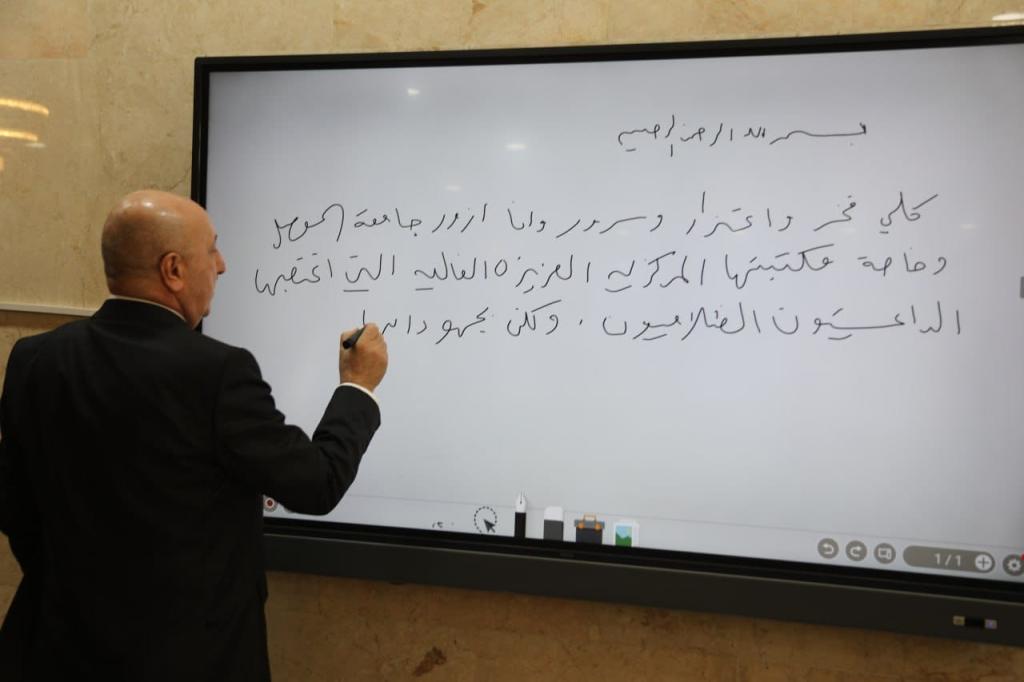 بسم الله الرحمن الرحيم
كلي فخر واعتزاز وسرور وانا ازور جامعة الموصل
وخاصة مكتبتها المركزيه العزيزه الغاليه التي اغتصبها
الداعشيون الظلاميون . ولكن بجهود
1/1